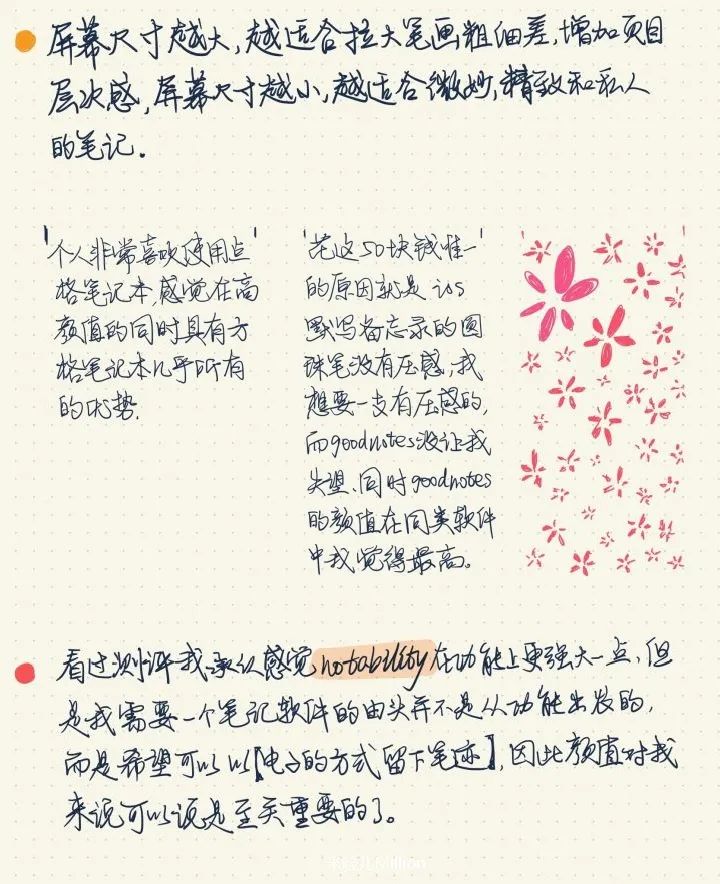 屏幕尺寸越大,越适合拉大笔画粗细差,增加项目
层次感,屏幕尺寸越小,越适合微妙,精致和私人
的笔记.
个人非常喜欢使用点
格笔记本,感觉在高
颜值的同时具有方
格笔记本几乎所有
的优势.
花这50块钱唯一
的原因就是ios
默写备忘录的圆
珠笔没有压感,我
想要一支有压感的,
而goodnotes没让我
失望、同时goodnotes
的颜值在同类软件
中我觉得最高。
看过测评我承认感觉notability在功能上更强大一点,但
是我需要一个笔记软件的由头并不是从功能出发的,
而是希望可以以【电子的方式留下笔迹】,因此颜值对我
来说可以说是至关重要的了。